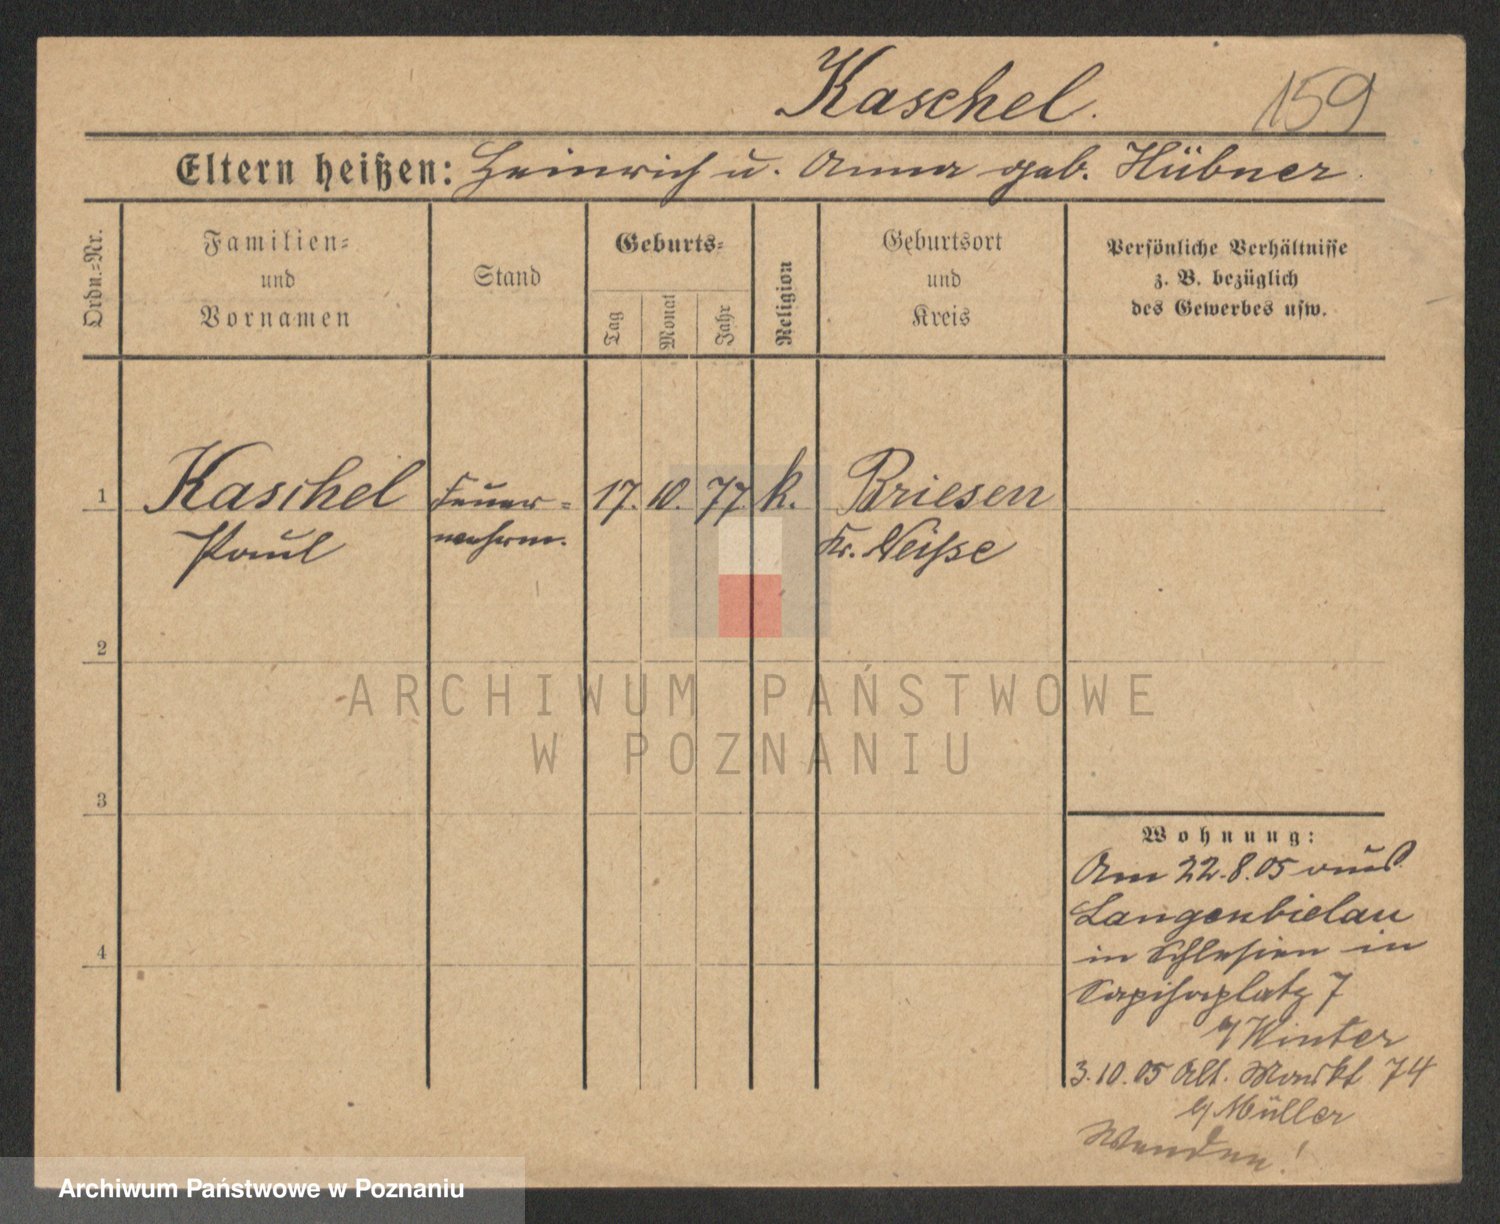 Kaschel.
159
Eltern heißen: Heinrich u. Anna geb. Hübner.
Ordn.-Nr.
Familien-
und
Vornamen
Stand
Geburts-
Tag
Monat
Jahr
Religion
Geburtsort
und
Kreis
Persönliche Verhältnisse
z. B. bezüglich
des Gewerbes usw.
1
Kaschel
Paul
Feuer-
wehrm.
17. 10. 77.
k.
Briesen
Kr. Neisse
2
3
4
Wohnung:
Am 22.8.05 aus
Langenbielau
in Schlesien in
Sapihaplatz 7
b/ Winter
3.10.05 Alt. Markt 74
b/ Müller
Wenden!
ARCHIWUM PAŃSTWOWE
W POZNANIU
Archiwum Państwowe w Poznaniu